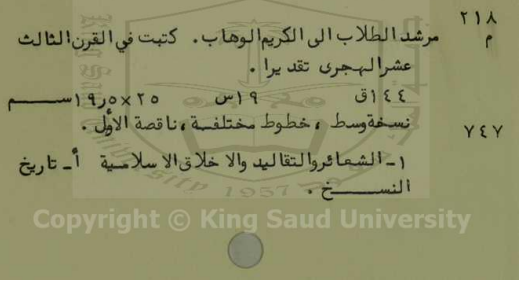 ٢١٨
م
مرشد الطلاب الى الكريم الوهاب . كتبت في القرن الثالث
عشر الهجرى تقديرا .
١٤٤ق ١٩س ٢٥×١٩٫٥ســـم
٧٤٧
نسخة وسط ، خطوط مختلفــة ، ناقصة الأول .
١ـ الشعائر والتقاليد والاخلاق الاسلامية أ ـ تاريخ
النســــخ .
1957
Copyright © King Saud University